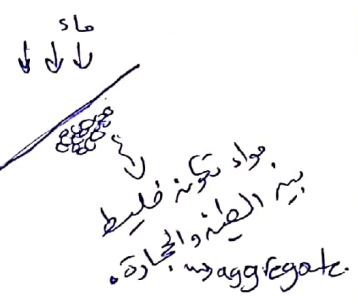 ماء
مواد تكونه خليط
بينه الطينه والحجارة.
aggregate.